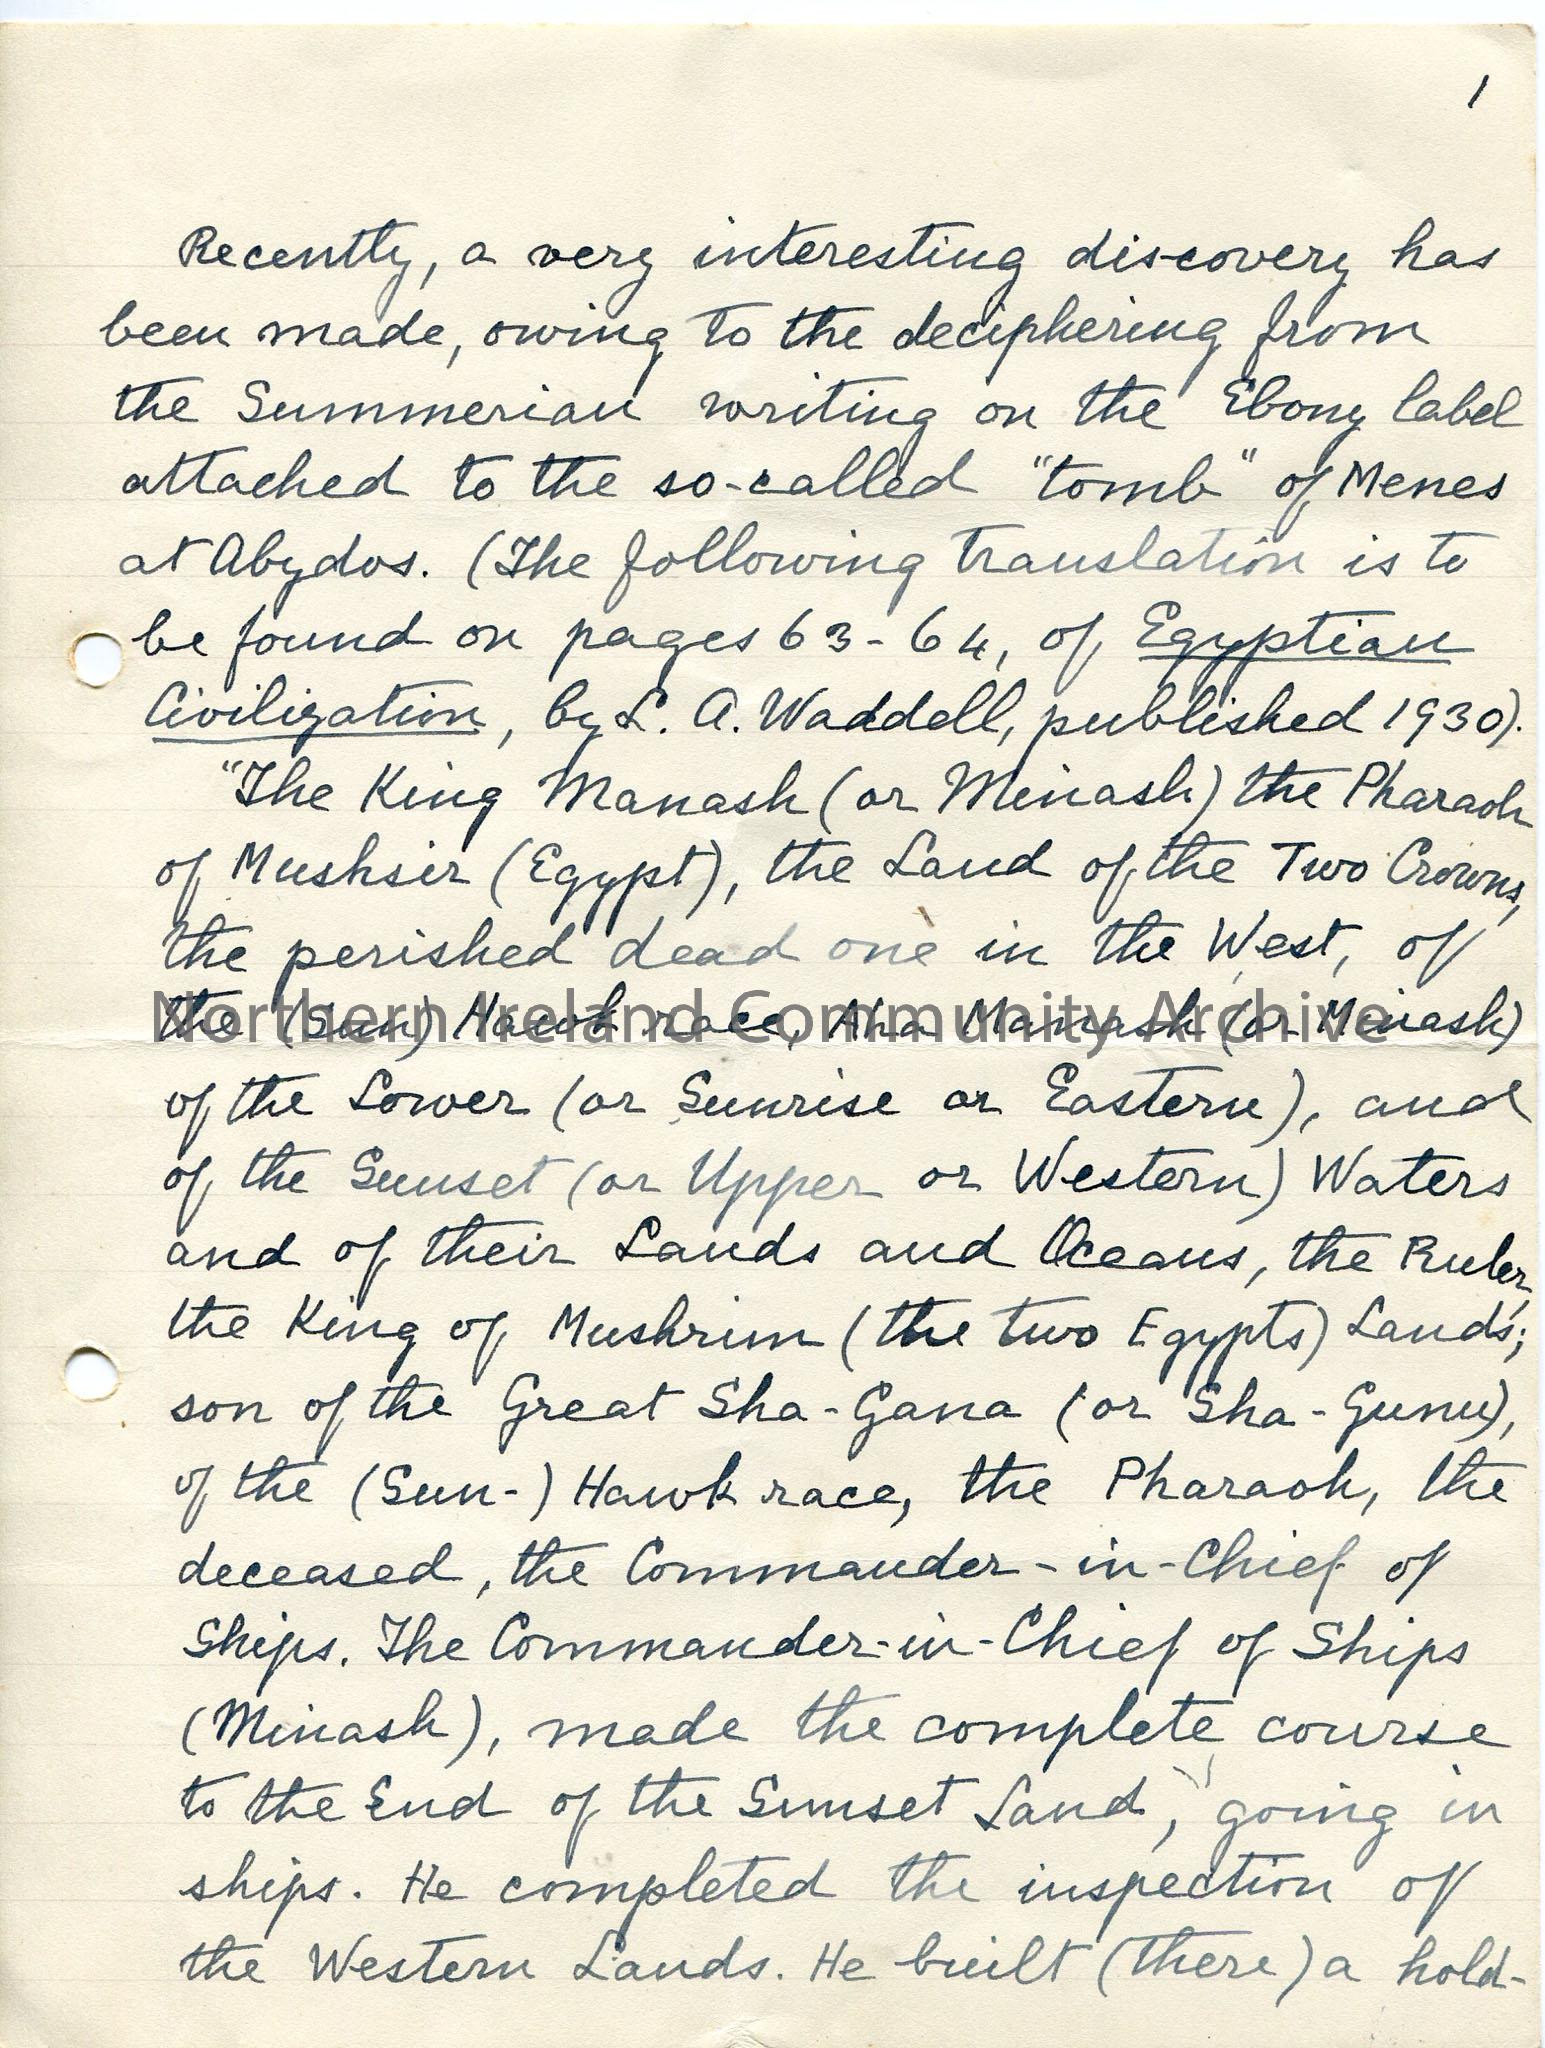 1
Recently, a very interesting discovery has
been made, owing to the deciphering from
the Summerian writing on the Ebony label
attached to the so-called "tomb" of Menes
at Abydos. (The following translation is to
be found on pages 63-64, of Egyptian
Civilization, by L. A. Waddell, published 1930).
"The King Manash (or Minash) the Pharaoh
of Mushsir (Egypt), the Land of the Two Crowns,
the perished dead one in the West, of
the (Sun) Hawk race, Aha Manash (or Minash)
Northern Ireland Community Archive
of the Lower (or Sunrise or Eastern), and
of the Sunset (or Upper or Western) Waters
and of their Lands and Oceans, the Ruler,
the King of Mushrim (the two Egypts) Lands;
son of the Great Sha-Gana (or Sha-Gunu),
of the (Sun-) Hawk race, the Pharaoh, the
deceased, the Commander-in-Chief of
Ships. The Commander-in-Chief of Ships
(Minash), made the complete course
to the End of the Sunset Land, going in
ships. He completed the inspection of
the Western Lands. He built (there) a hold-